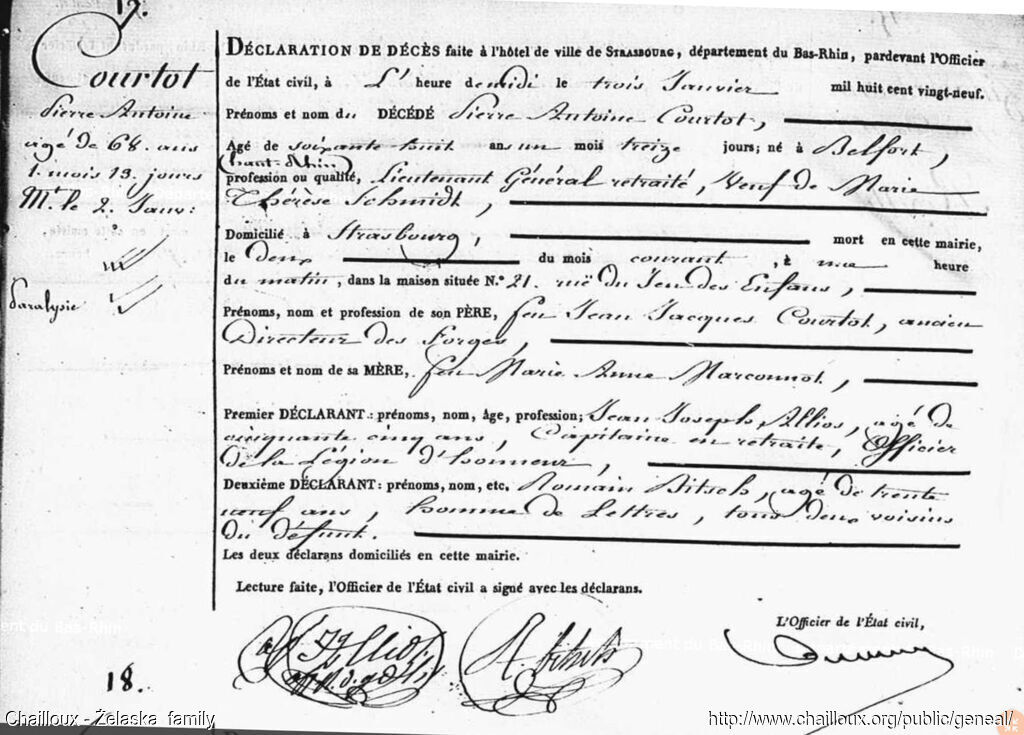 17.
Courtot
Pierre Antoine
agé de 68. ans
1. mois 13. jours
M. le 2. Janv:
Paralysie
DÉCLARATION DE DÉCÈS faite à l'hôtel de ville de STRASBOURG, département du Bas-Rhin, pardevant l'Officier
de l'État civil, à L' heure de midi le trois Janvier mil huit cent vingt-neuf.
Prénoms et nom du DÉCÉDÉ Pierre Antoine Courtot,
Agé de soixante huit ans un mois treize jours; né à Belfort,
(haut-Rhin)
profession ou qualité, Lieutenant Général retraité, Veuf de Marie
Thérèse Schmidt,
Domicilié à Strasbourg, mort en cette mairie,
le deux du mois courant, à une heure
du matin, dans la maison située N.° 21. ruë du Jeu des Enfans,
Prénoms, nom et profession de son PÈRE, feu Jean Jacques Courtot, ancien
Directeur des Forges,
Prénoms et nom de sa MÈRE, feu Marie Anne Marconnot,
Premier DÉCLARANT: prénoms, nom, âge, profession; Jean Joseph Allios, agé de
cinquante cinq ans, Capitaine en retraite, Officier
de la Légion d'honneur,
Deuxième DÉCLARANT: prénoms, nom, etc. Romain Bitsch, agé de trente
neuf ans, homme de Lettres, tous deux voisins
du défunt.
Les deux déclarans domiciliés en cette mairie.
Lecture faite, l'Officier de l'État civil a signé avec les déclarans.
L'Officier de l'État civil,
18.
Chailloux - Żelaska family
http://www.chailloux.org/public/geneal/